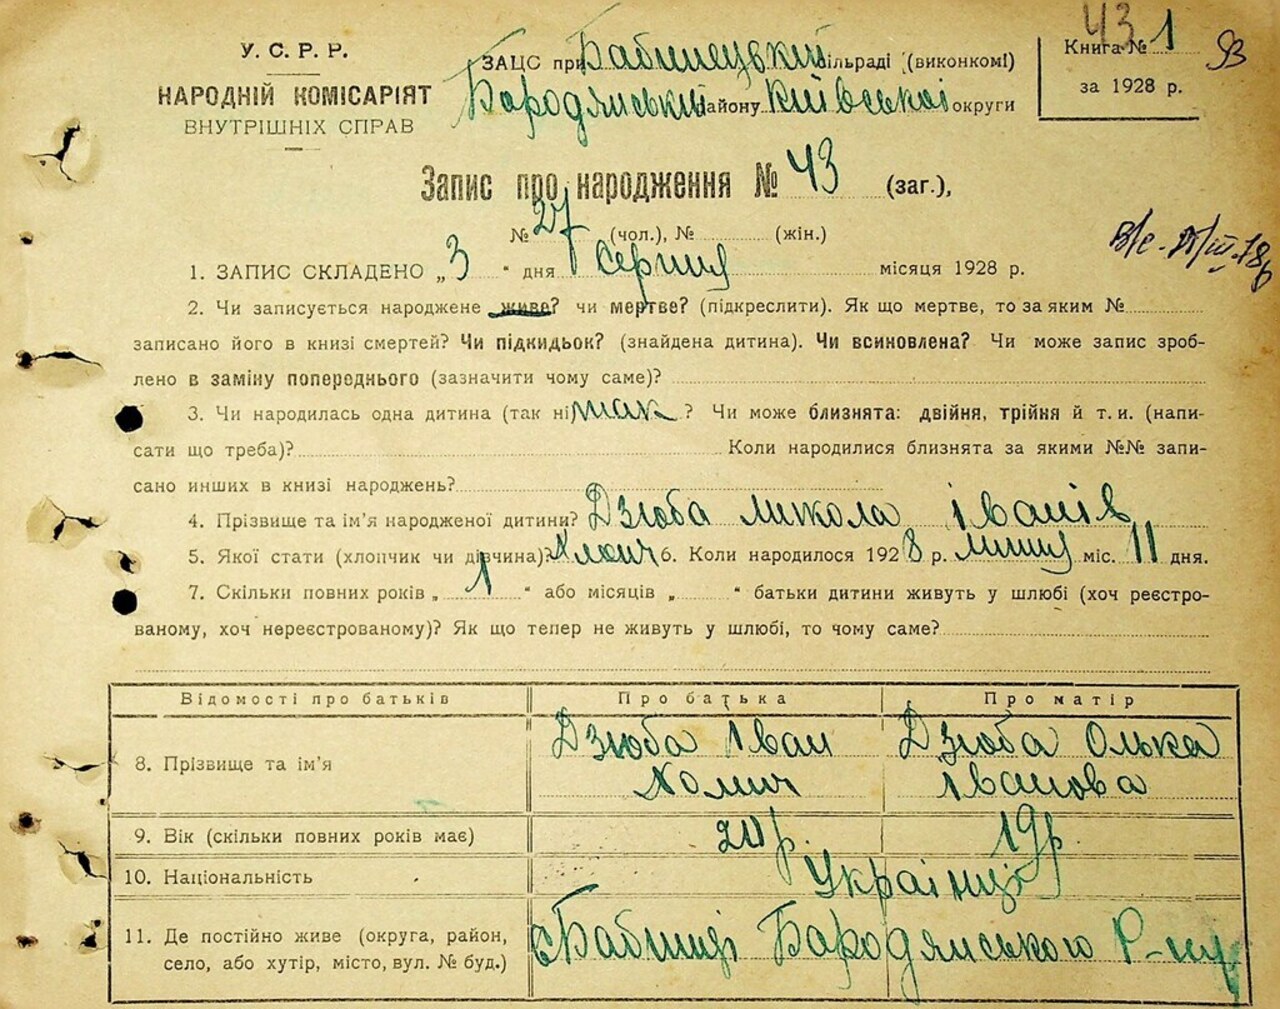 43
У. С. Р. Р.
НАРОДНІЙ КОМІСАРІЯТ
ВНУТРІШНІХ СПРАВ
ЗАЦС при Бабинецкій сільраді (виконкомі)
Бородянський району Київської округи
Книга № 1
за 1928 р.
93
Запис про народження № 43 (заг.),
№ 27 (чол.), № (жін.)
1. ЗАПИС СКЛАДЕНО „3" дня Серпня місяця 1928 р.
2. Чи записується народжене живе? чи мертве? (підкреслити). Як що мертве, то за яким №
записано його в книзі смертей? Чи підкидьок? (знайдена дитина). Чи всиновлена? Чи може запис зроб-
лено в заміну попереднього (зазначити чому саме)?
3. Чи народилась одна дитина (так ні) так ? Чи може близнята: двійня, трійня й т. и. (напи-
сати що треба)? Коли народилися близнята за якими №№ запи-
сано инших в книзі народжень?
4. Прізвище та ім'я народженої дитини? Дзюба Микола Іванів
5. Якої стати (хлопчик чи дівчина)? Хлопч 6. Коли народилося 1928 р. Липня міс. 11 дня.
7. Скільки повних років „ 1 " або місяців „ " батьки дитини живуть у шлюбі (хоч реєстро-
ваному, хоч нереєстрованому)? Як що тепер не живуть у шлюбі, то чому саме?
Відомості про батьків Про батька Про матір
8. Прізвище та ім'я Дзюба Іван Дзюба Олька
Хомич Іванова
9. Вік (скільки повних років має) 20 р. 19 р.
10. Національність Українці
11. Де постійно живе (округа, район,
село, або хутір, місто, вул. № буд.)
с Бабинці Бородянського Р-ну